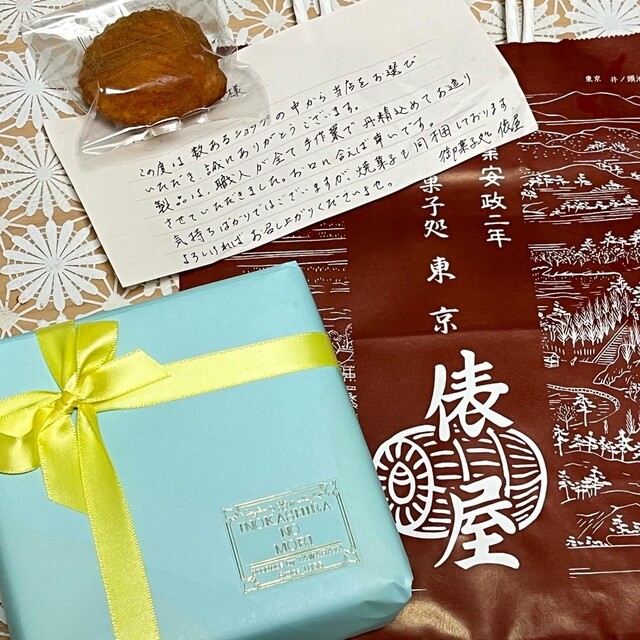 様
この度は数あるショップの中から当店をお選び
いただき、誠にありがとうございます。
製品は、職人が全て手作業で丹精込めてお造り
させていただきました。お口に合えば幸いです。
気持ちばかりではございますが焼菓子を同梱しております
よろしければお召し上がりくださいませ。
御菓子処 俵屋
東京 井ノ頭
業安政二年
菓子処
東京
俵屋
INOKASHIRA
NO
MORI